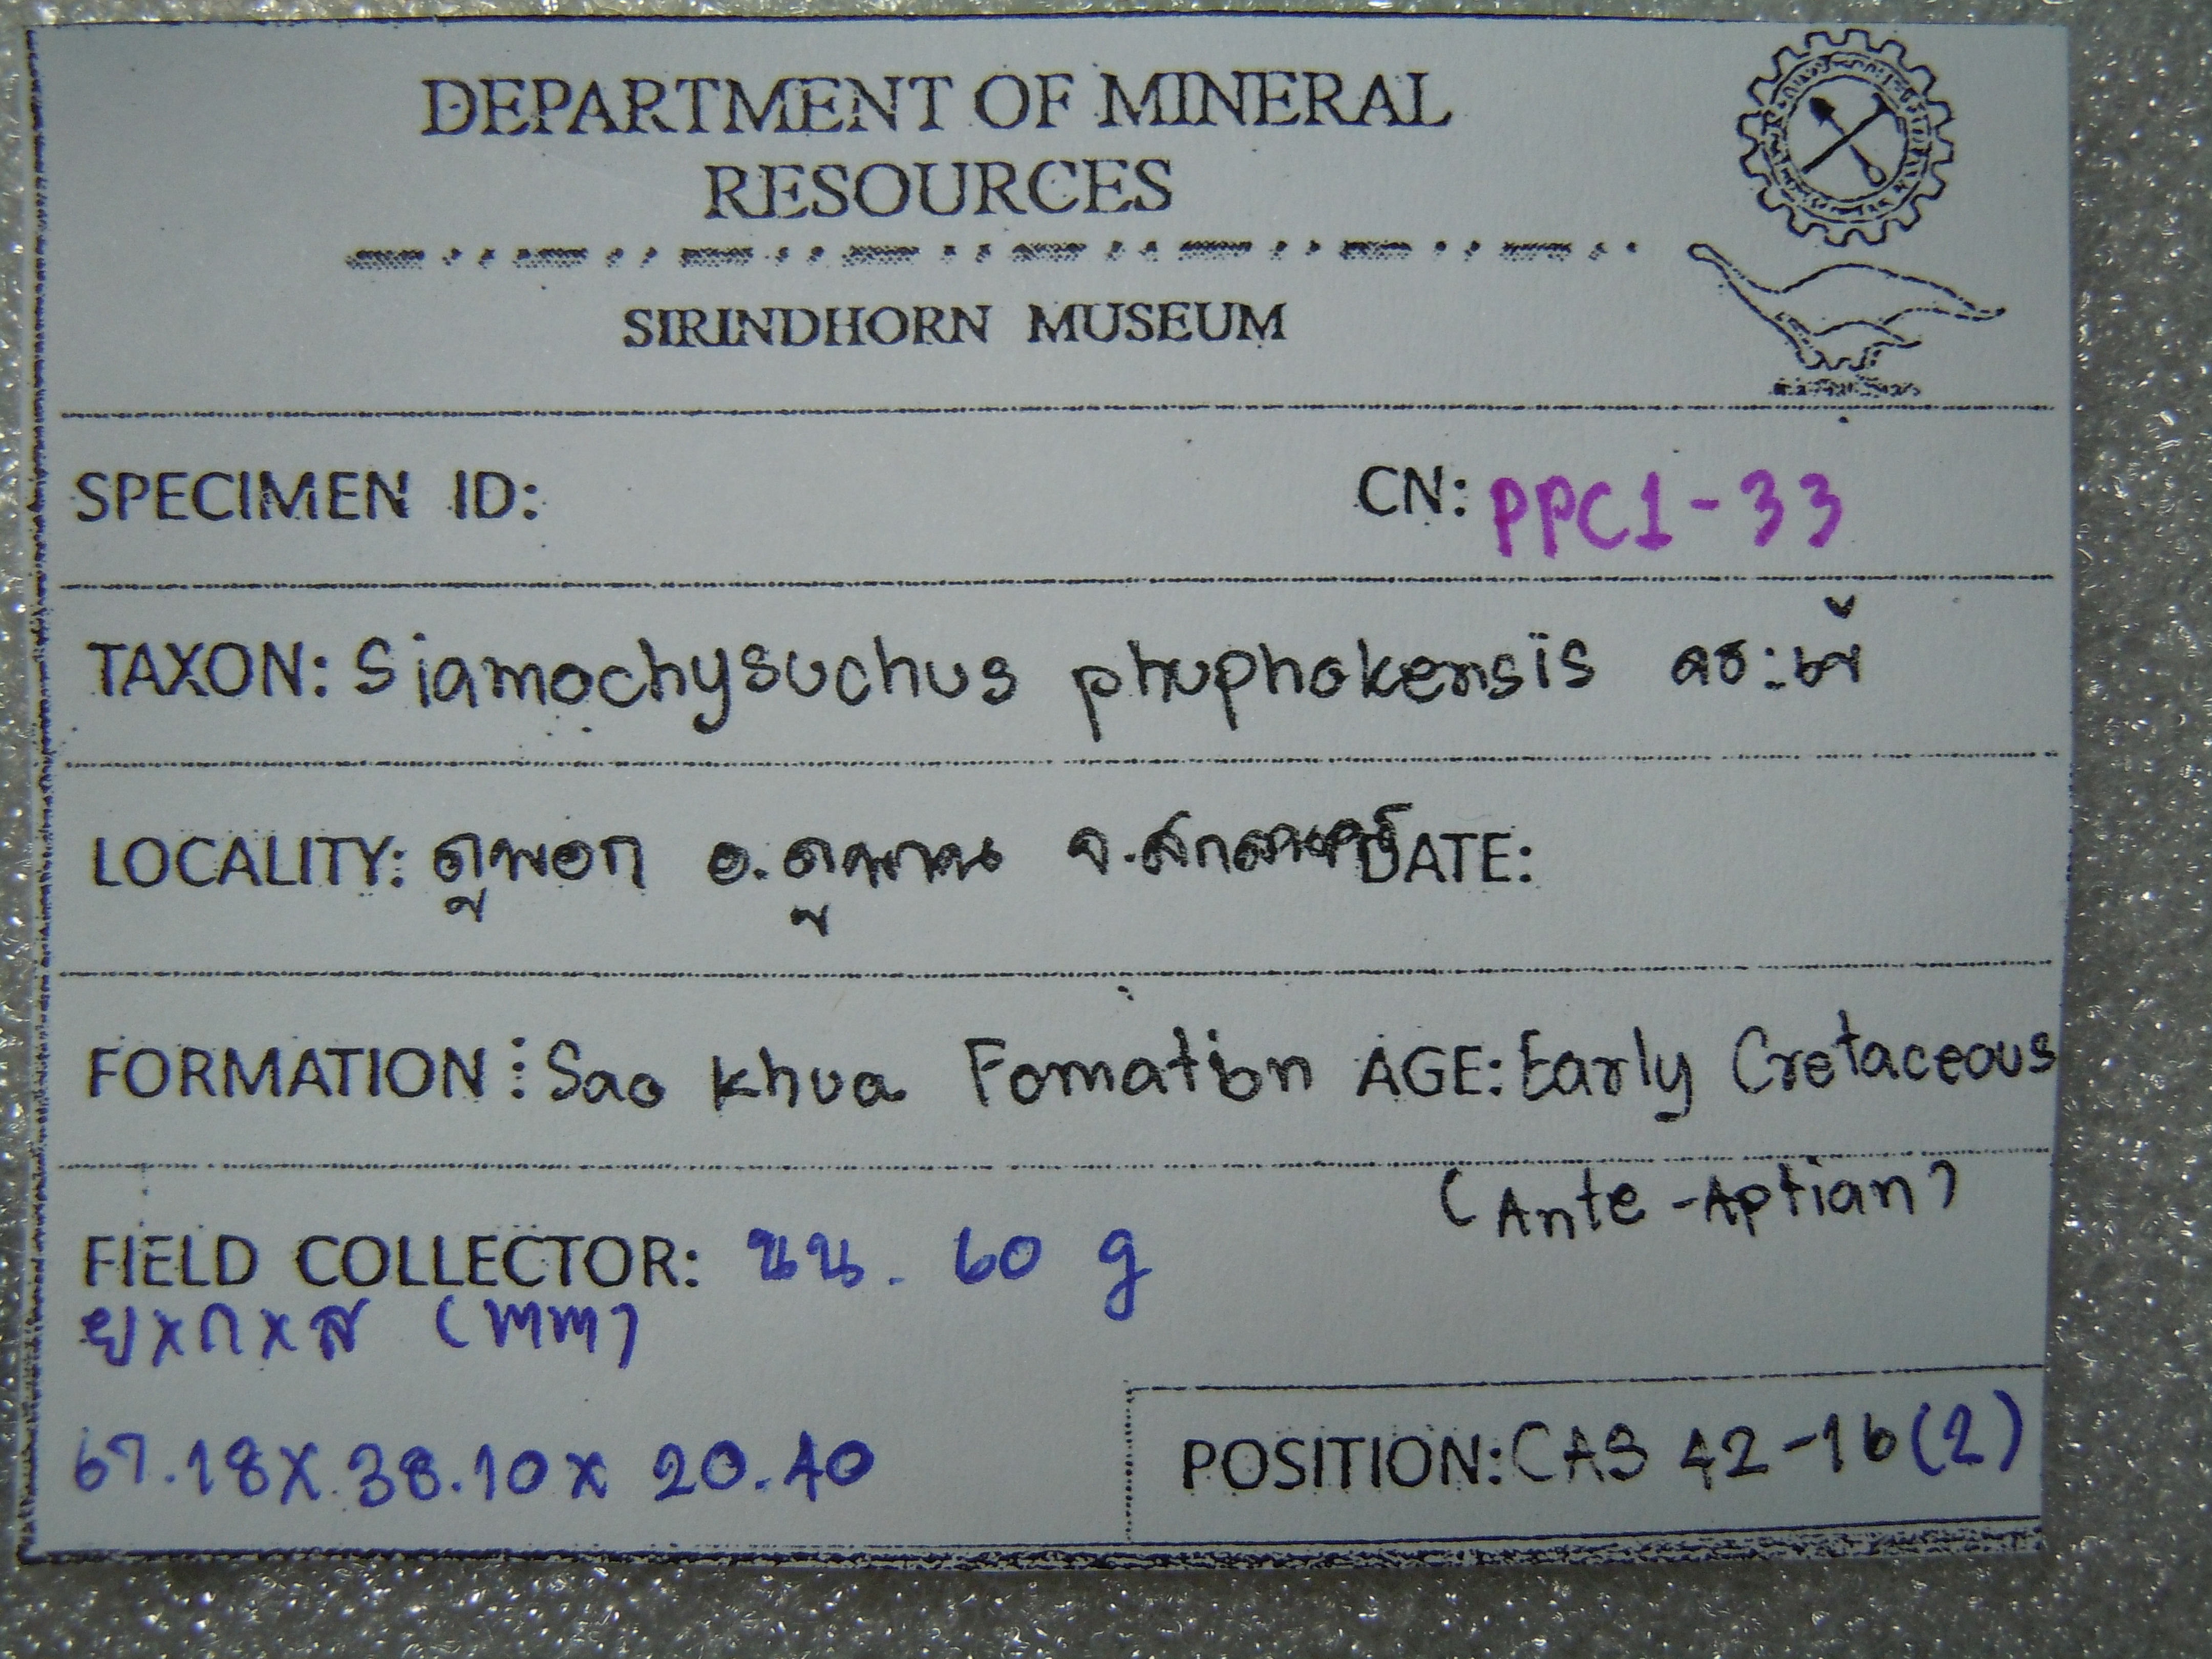 DEPARTMENT OF MINERAL
RESOURCES
SIRINDHORN MUSEUM
SPECIMEN ID: CN: PPC1-33
TAXON: Siamochysuchus phuphokensis จระเข้
LOCALITY: ภูพอก อ.ภูพาน จ.สกลนคร์ DATE:
FORMATION: Sao Khua Fomation AGE: Early Cretaceous
(Ante-Aptian)
FIELD COLLECTOR: นน. 60 g
ย x ก x ส (mm)
67.18 x 38.10 x 20.40
POSITION: CAS 42-16(2)